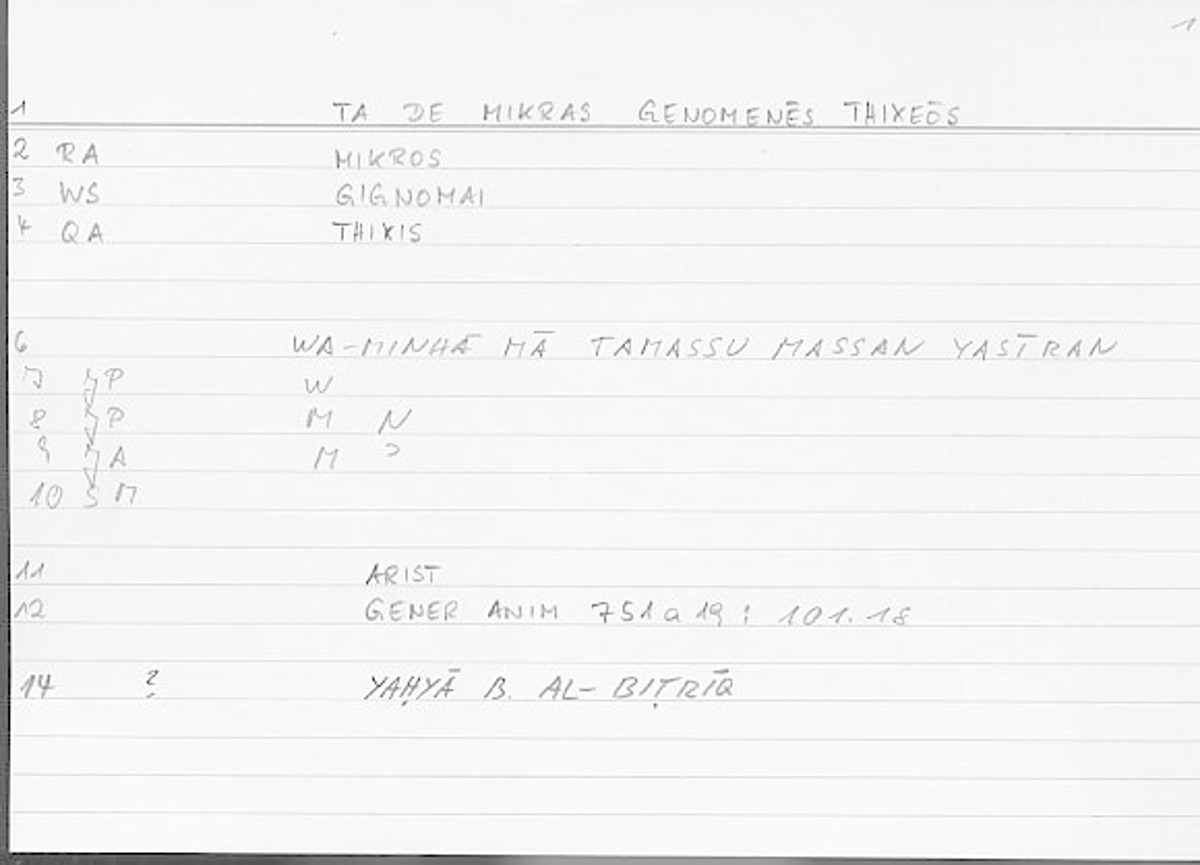 1
1 TA DE MIKRAS GENOMENĒS THIXEŌS
2 RA MIKROS
3 WS GIGNOMAI
4 QA THIXIS
6 WA-MINHĀ MĀ TAMASSU MASSAN YASĪRAN
7 P W
8 P M N
9 A M
10 S M
11 ARIST
12 GENER ANIM 751a19 : 101.18
14 ? YAḤYĀ B. AL-BIṬRĪQ